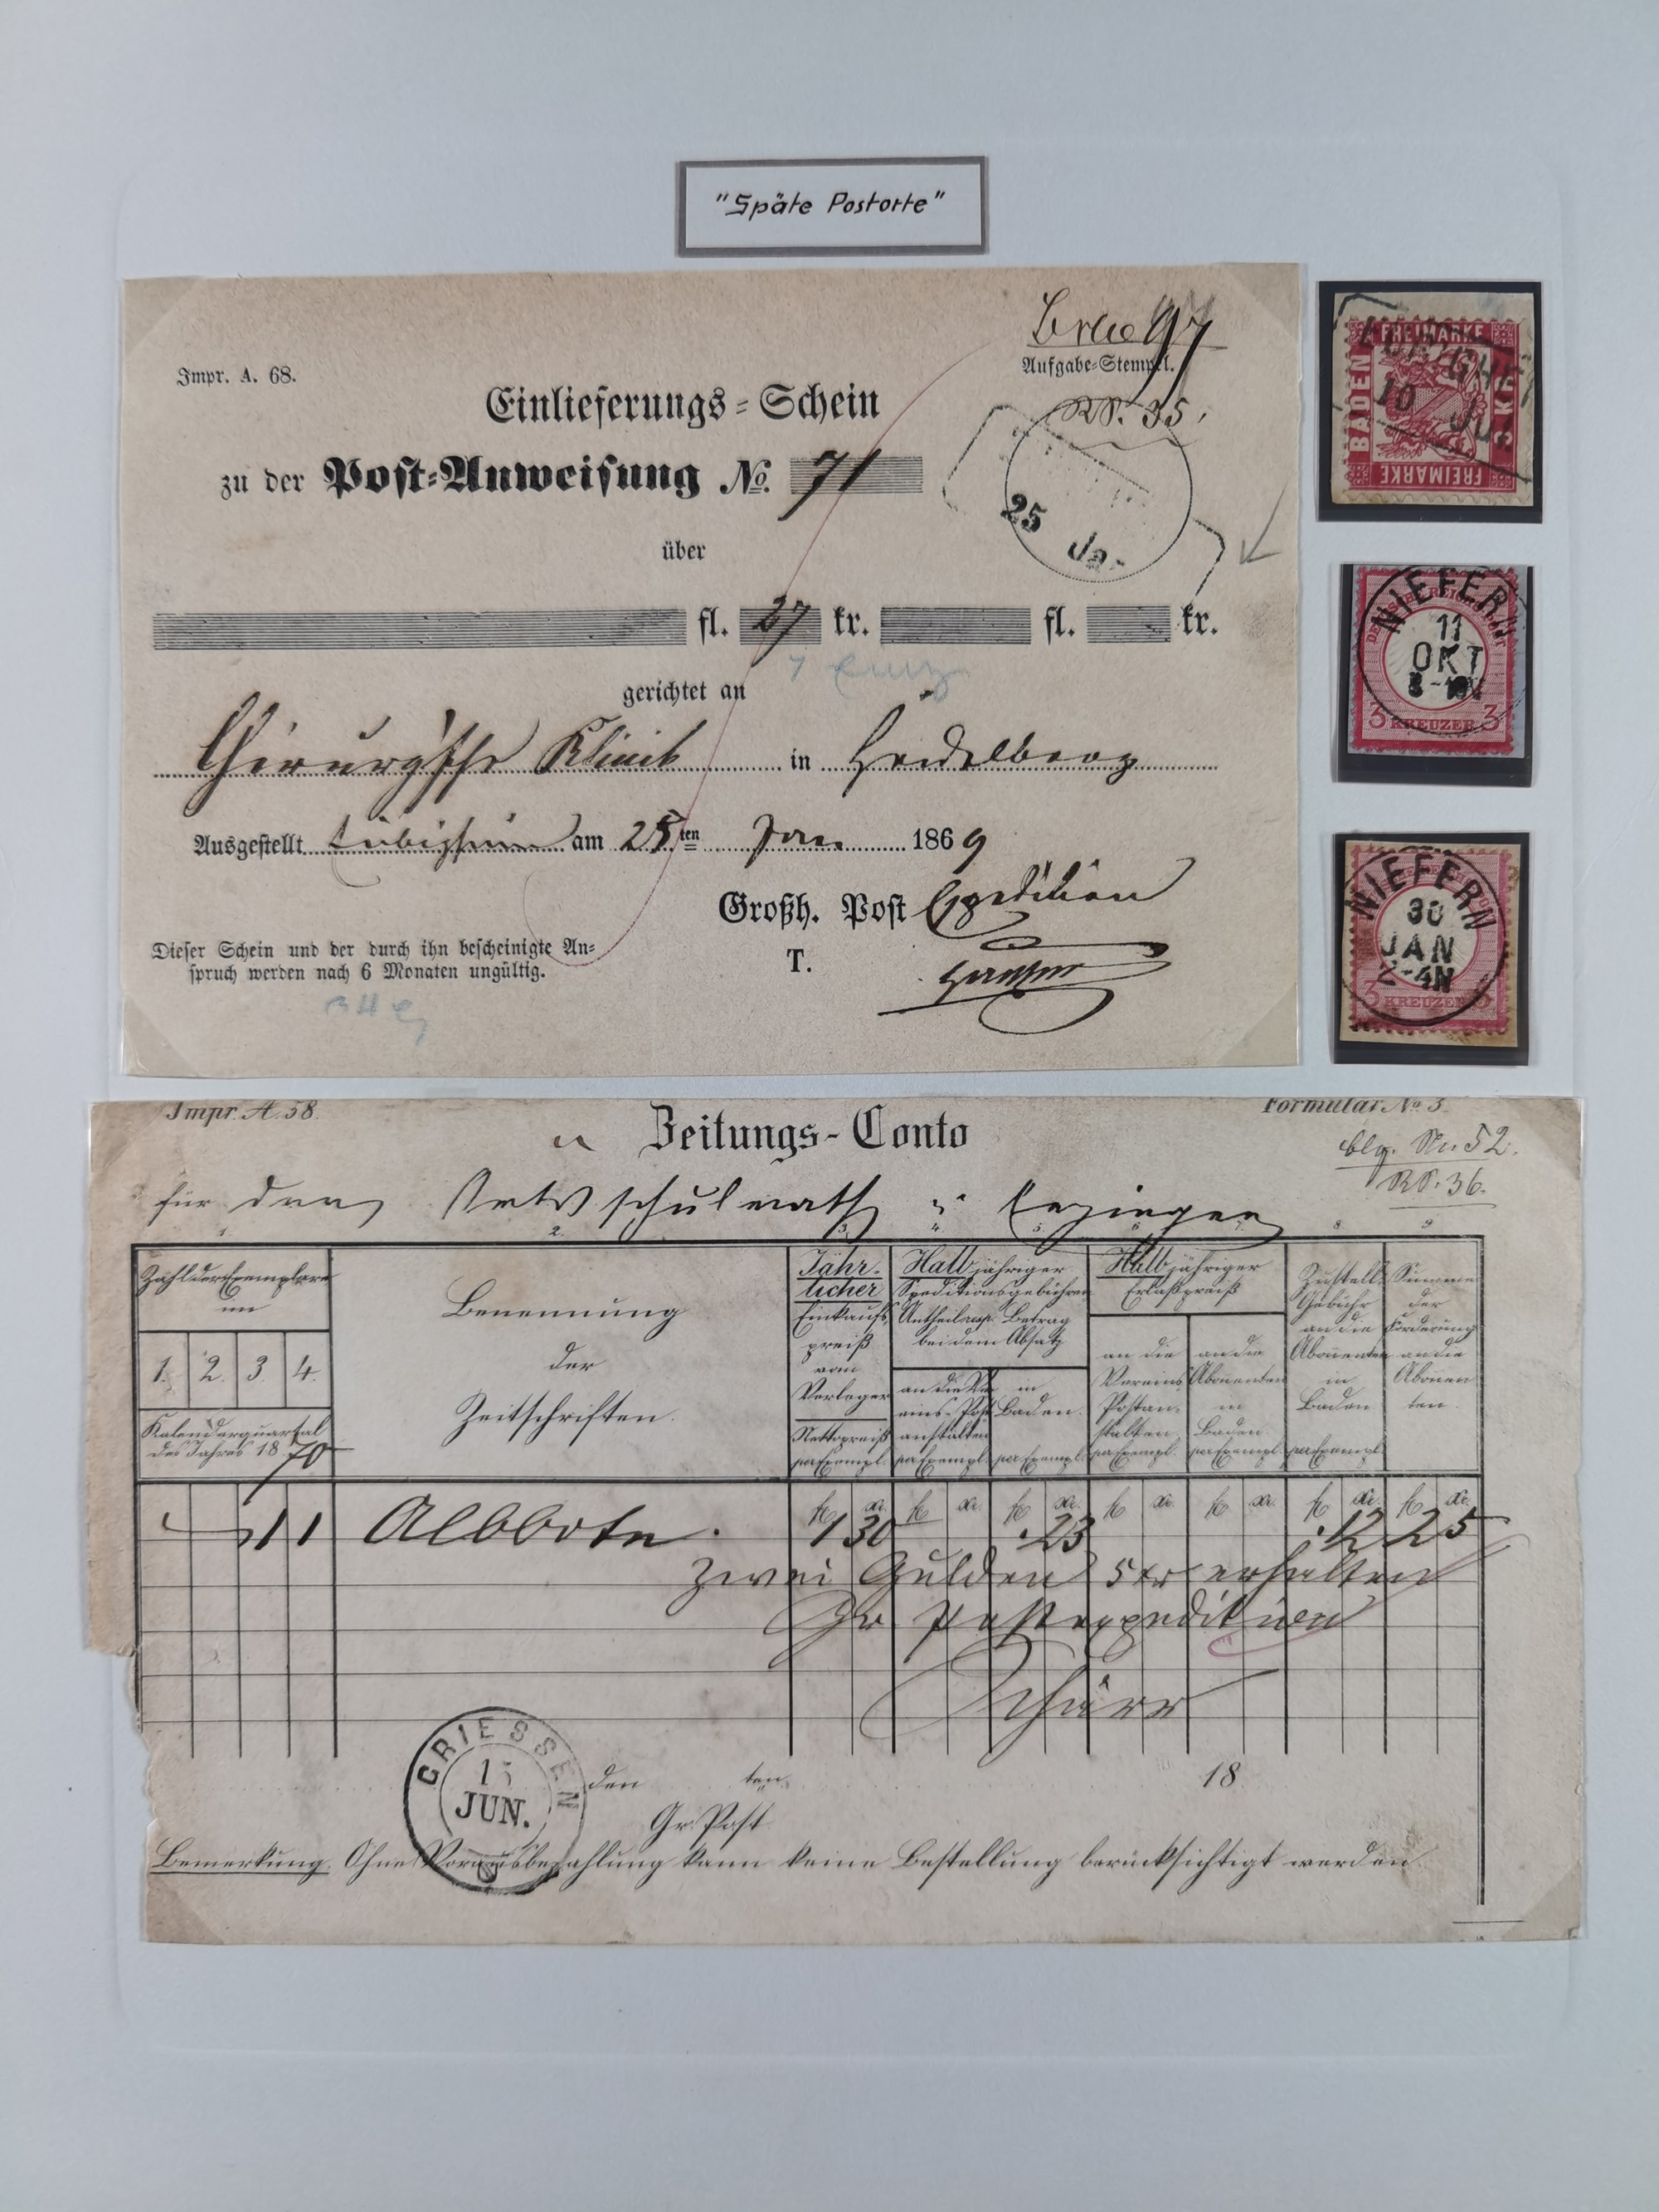 "Späte Postorte"
Impr. A. 68.
Aufgabe-Stempel.
RP. 35.
Einlieferungs-Schein
zu der Post-Anweisung No. 71
25 Ja
über
fl. 27 kr. fl. kr.
gerichtet an
Chirurg'sche Klinik in Heidelberg
Ausgestellt am 25ten Jan. 1869
Großh. Post Expedition
T.
Dieser Schein und der durch ihn bescheinigte An-
spruch werden nach 6 Monaten ungültig.
FREIMARKE
BADEN
3 KR.
10 JUL
FREIMARKE
NIEFERN
11
OKT
3 KREUZER 3
NIEFERN
30
JAN
2-4N
3 KREUZER 3
Impr. A. 58.
Formular. No 3.
Zeitungs-Conto
blg. No. 52.
RP. 36.
für den
1. 2. 3. 4. 5. 6. 7. 8. 9
Zahl der Exemplare
im
1. 2. 3. 4.
Kalenderquartal
des Jahres 1870
Benennung
der
Zeitschriften.
Jähr-
licher
Einkaufs
preiß
vom
Verleger
Nettopreiß
per Exempl.
Halbjähriger
Speditionsgebühren
Antheil resp. Betrag
bei dem Absatz
an die Ver
eins-Post
anstalten
per Exempl.
in
Baden.
per Exempl.
Halbjähriger
Erlaßpreiß
an die
Vereins
Postan-
stalten
per Exempl.
an die
Abonenten
in
Baden
per Exempl.
Zustell
Gebühr
an die
Abonenten
in
Baden
per Exempl.
Summe
der
Forderung
an die
Abonen
ten.
fl xr. fl xr. fl xr. fl xr. fl xr. fl xr. fl xr.
1 1 Albbote. 1 30 . 23 . 12 2 5
Zwei Gulden 5 xr erhalten
Gr Postexpedition
GRIESSEN
JUN.
den ten 18
Gr. Post
Bemerkung. Ohne Vorausbezahlung kann keine Bestellung berücksichtigt werden.